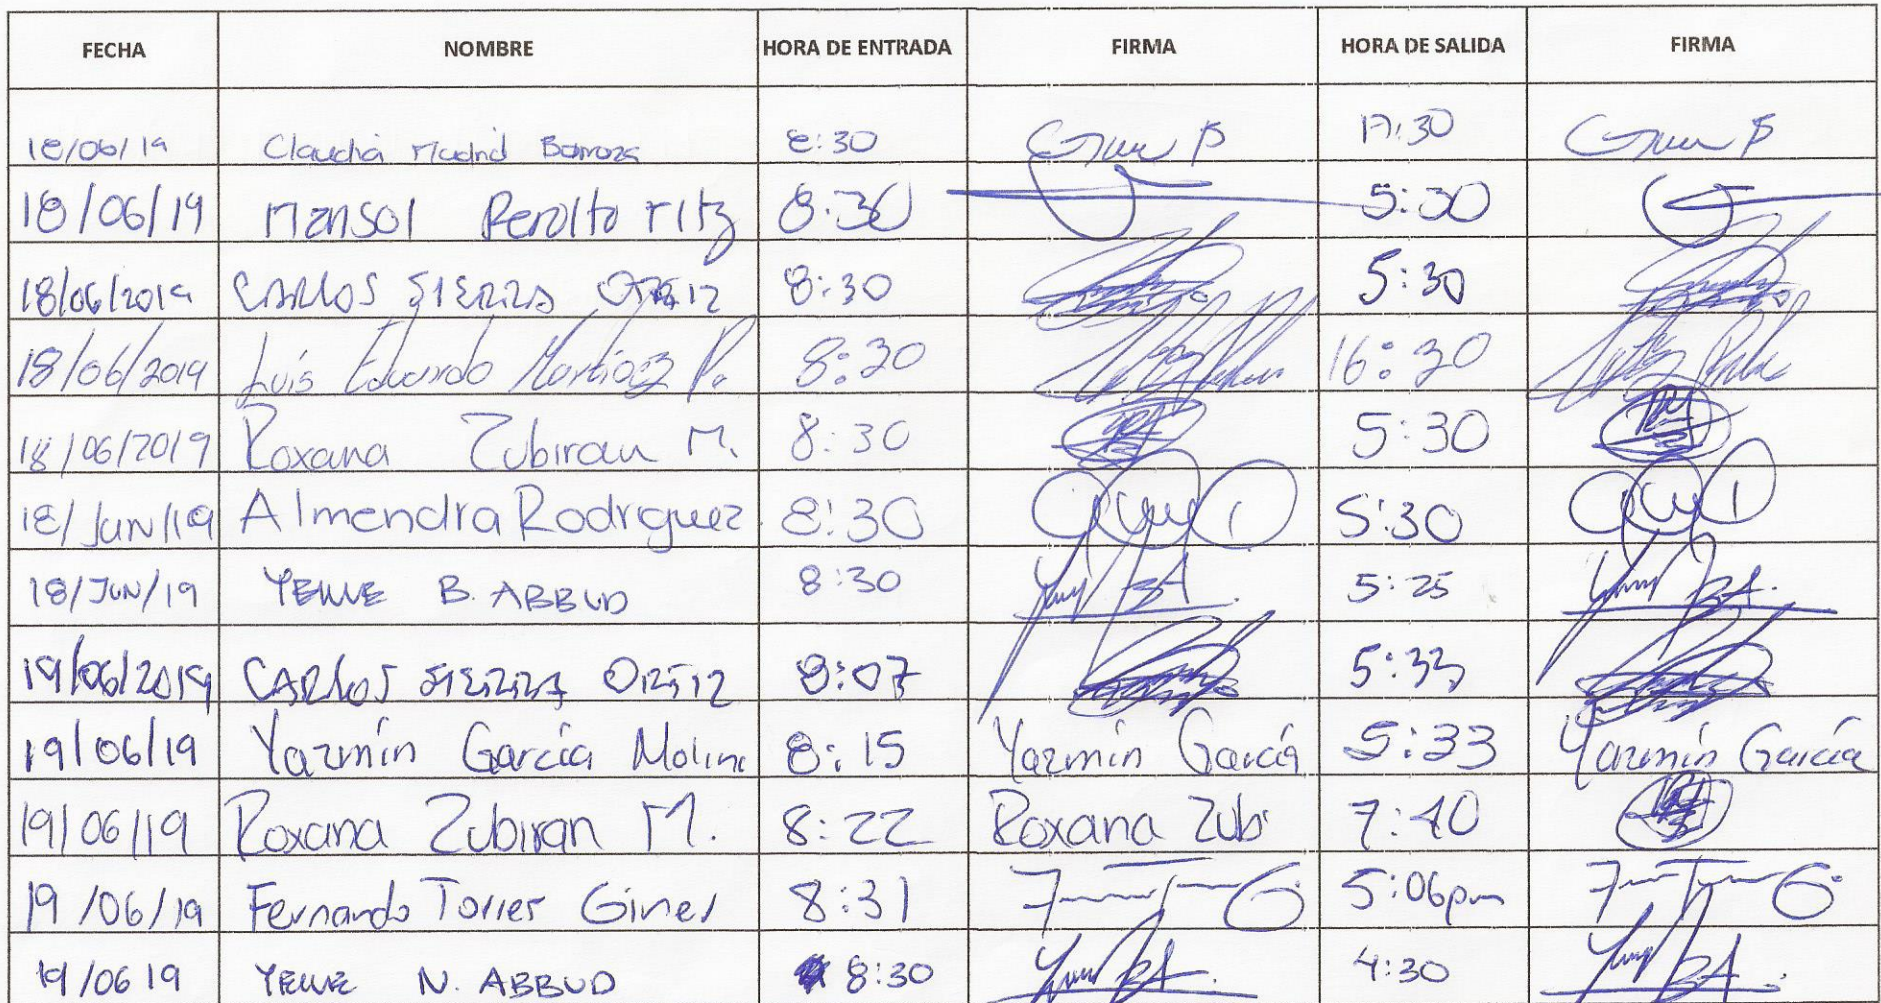 FECHA NOMBRE HORA DE ENTRADA FIRMA HORA DE SALIDA FIRMA
18/06/19 Claudia Madrid Barroza 8:30 17:30
18/06/19 Marisol Peralta 8:30 5:30
18/06/2019 CARLOS SIERRA ORTIZ 8:30 5:30
18/06/2019 Luis Eduardo Martínez P. 8:30 16:30
18/06/2019 Roxana Zubiran M. 8:30 5:30
18/Jun/19 Almendra Rodriguez 8:30 5:30
18/JUN/19 B. ABBUD 8:30 5:25
19/06/2019 CARLOS SIERRA ORTIZ 8:07 5:33
19/06/19 Yazmín García Molin 8:15 Yazmín García 5:33 Yazmín García
19/06/19 Roxana Zubiran M. 8:22 Roxana Zubi 7:40
19/06/19 Fernando Torres Gines 8:31 5:06pm
19/06 19 N. ABBUD 8:30 4:30